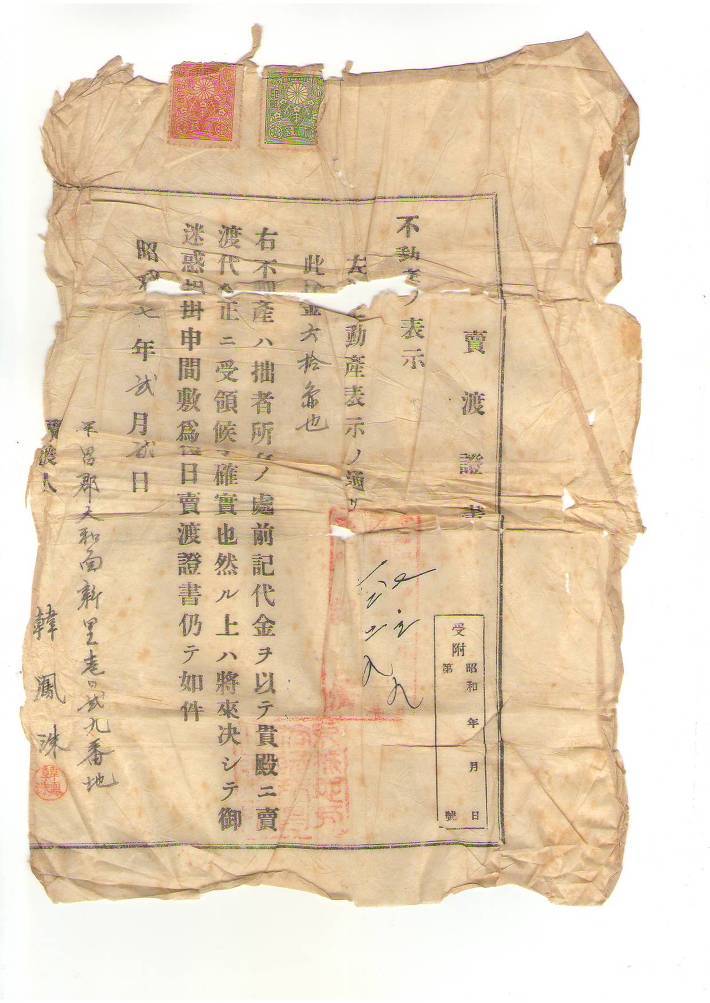 賣渡證書
受附 昭和 年 月 日
第 號
不動產ノ表示
左 不動產表示ノ通リ
此 金六拾 也
右不動產ハ拙者所有ノ處前記代金ヲ以テ貴殿ニ賣
渡代金正ニ受領候 確實也然ル上ハ將來決シテ御
迷惑相掛申間敷爲後日賣渡證書仍テ如件
昭和七年貳月 日
平昌郡大和面新里壱〇貳九番地
賣渡人 韓鳳洙